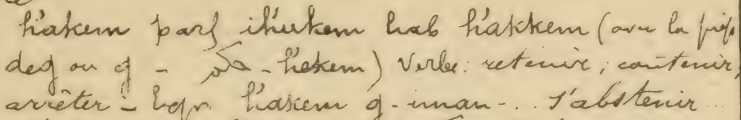 h'akem parf ih'ukem hab h'akkem (avec la prép
deg ou g - حكم - h'ekem) Verbe: retenir; contenir;
arrêter - Expr. h'akem g-iman-.. s'abstenir